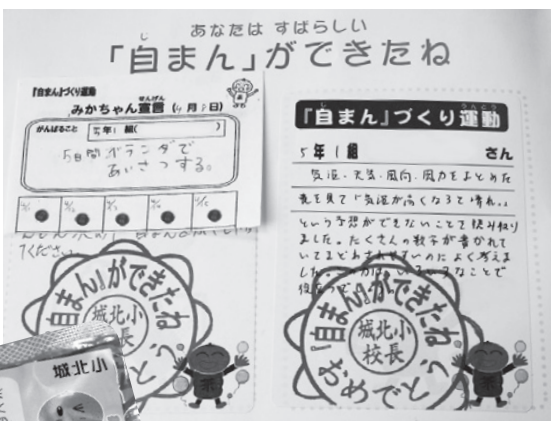 あなたは すばらしい
「自まん」ができたね
『自まん』づくり運動
みかちゃん宣言(4月 日)
がんばること
5年1組( )
5日間 ベランダで
あいさつする。
ください
『自まん』ができたね
城北小
校長
城北小
『自まん』づくり運動
5年1組 さん
気温・天気・風向・風力をまとめた
表を見て「気温が高くなると晴れ。」
という予想ができないことを読み取り
ました。たくさんの数字が書かれて
いてまどわされやすいのに よく考えま
した。 いろいろなことで
『自まん』ができたね
城北小
校長
おめでとう